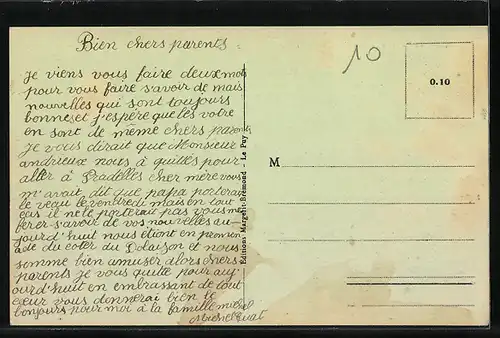 Bien chers parents
Je viens vous faire deux mots
pour vous faire savoir de mais
nouvelles qui sont toujours
bonneset j'espère que les votre
en sont de même chers parents
Je vous dirait que Monsieur
andrieux nous à quittes pour
aller à Pradelles cher mère vous
m'avait dit que papa porterai
le veau le vendredi mais en tout
cas il ne le porterait pas vous me
ferer savoir de vos nouvelles au-
jourd'hui nous étiont en promin
ade du coter du et nous
somme bien amuser alors chers
parents je vous quitte pour auj
ourd'huit en embrassant de tout
cœur vous donnerai bien le
bonjours pour moi à la famille michel
Michel
Editions Margerit-Brémond - Le Puy
10
0.10
M